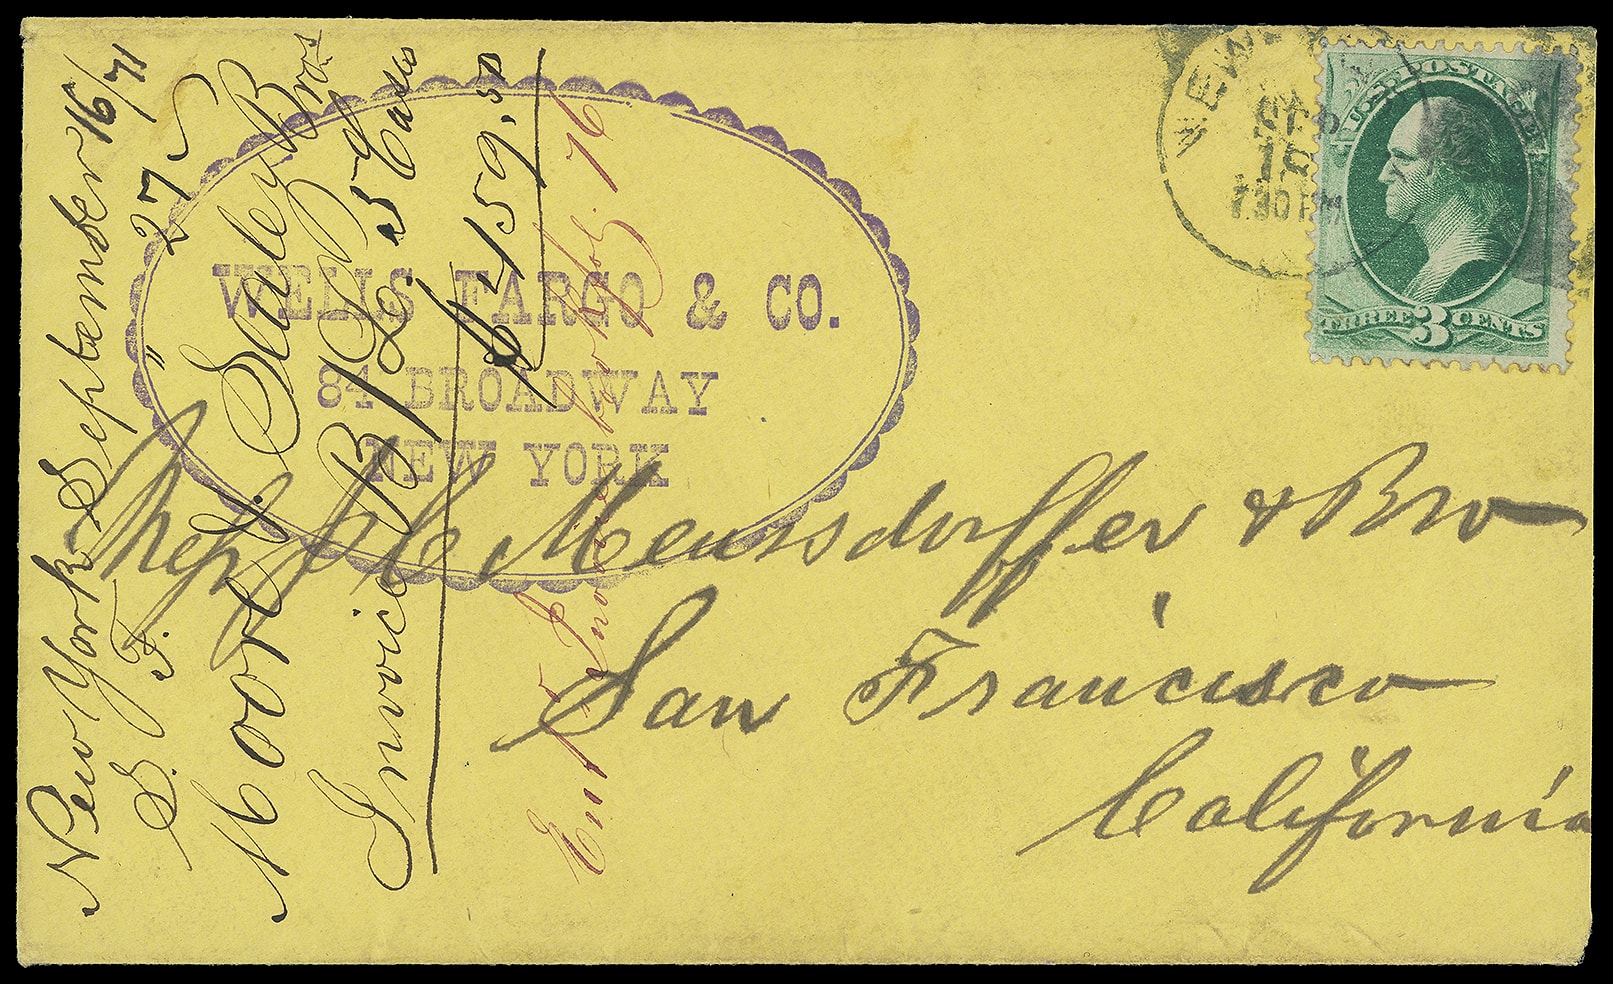 New York September 16/71
S. F. " 27
Moore J. Sauley Bros
Invoice B/L P 5 Casco
$ 459.50
Ent Invoice book fol. 76
WELLS FARGO & CO.
84 BROADWAY
NEW YORK
NEW
15
7.30 PM
U.S. POSTAGE
THREE 3 CENTS
Messrs C Meussdorffer & Bro
San Francisco
California